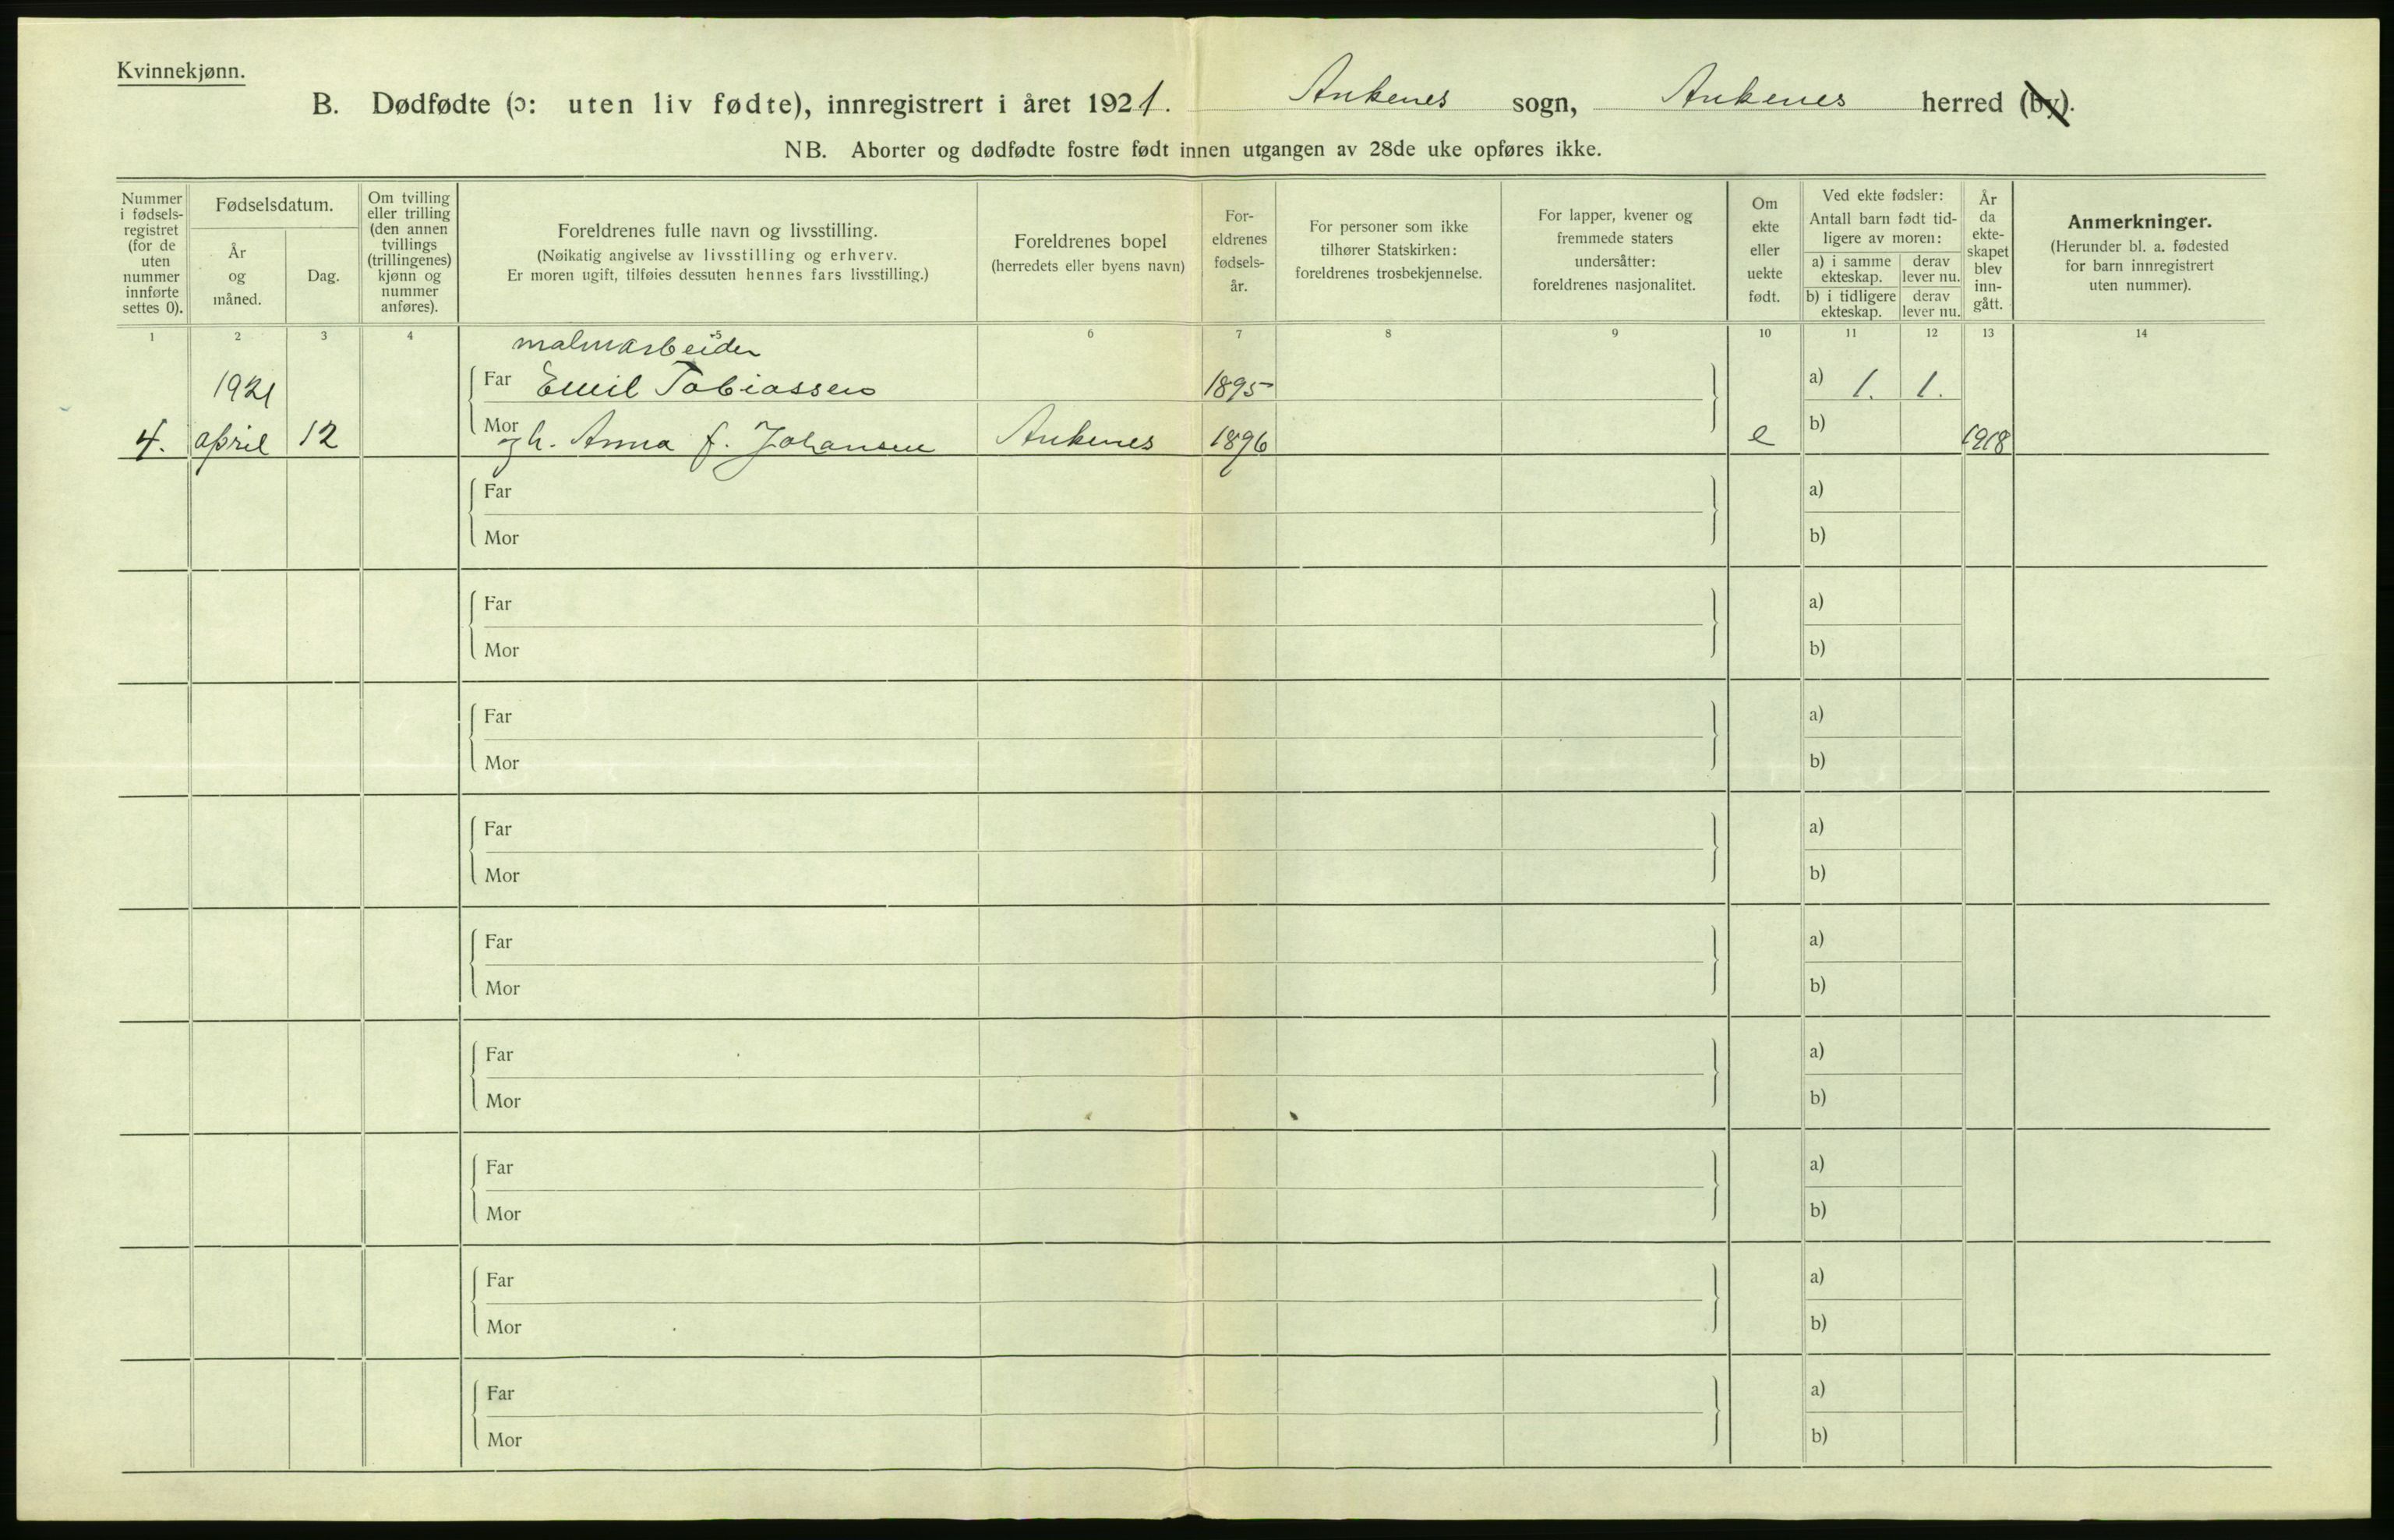 Kvinnekjønn.
B. Dødfødte (ɔ: uten liv fødte), innregistrert i året 1921. Ankenes sogn, Ankenes herred (by).
NB. Aborter og dødfødte fostre født innen utgangen av 28de uke opføres ikke.
Nummer i fødsels-registret (for de uten nummer innførte settes 0).
Fødselsdatum.
År og måned.
Dag.
Om tvilling eller trilling (den annen tvillings (trillingenes) kjønn og nummer anføres).
Foreldrenes fulle navn og livsstilling.
(Nøikatig angivelse av livsstilling og erhverv.
Er moren ugift, tilføies dessuten hennes fars livsstilling.)
Foreldrenes bopel
(herredets eller byens navn)
For-eldrenes fødsels-år.
For personer som ikke tilhører Statskirken: foreldrenes trosbekjennelse.
For lapper, kvener og fremmede staters undersåtter: foreldrenes nasjonalitet.
Om ekte eller uekte født.
Ved ekte fødsler:
Antall barn født tid-ligere av moren:
a) i samme ekteskap.
derav lever nu.
b) i tidligere ekteskap.
derav lever nu.
År da ekte-skapet blev inn-gått.
Anmerkninger.
(Herunder bl. a. fødested for barn innregistrert uten nummer).
1 2 3 4 5 6 7 8 9 10 11 12 13 14
malmarbeider
1921 Far Emil Tobiassen 1895 a) 1. 1.
4. april 12 Mor og h. Anna f. Johansen Ankenes 1896 e b) 1918
Far a)
Mor b)
Far a)
Mor b)
Far a)
Mor b)
Far a)
Mor b)
Far a)
Mor b)
Far a)
Mor b)
Far a)
Mor b)
Far a)
Mor b)
Far a)
Mor b)